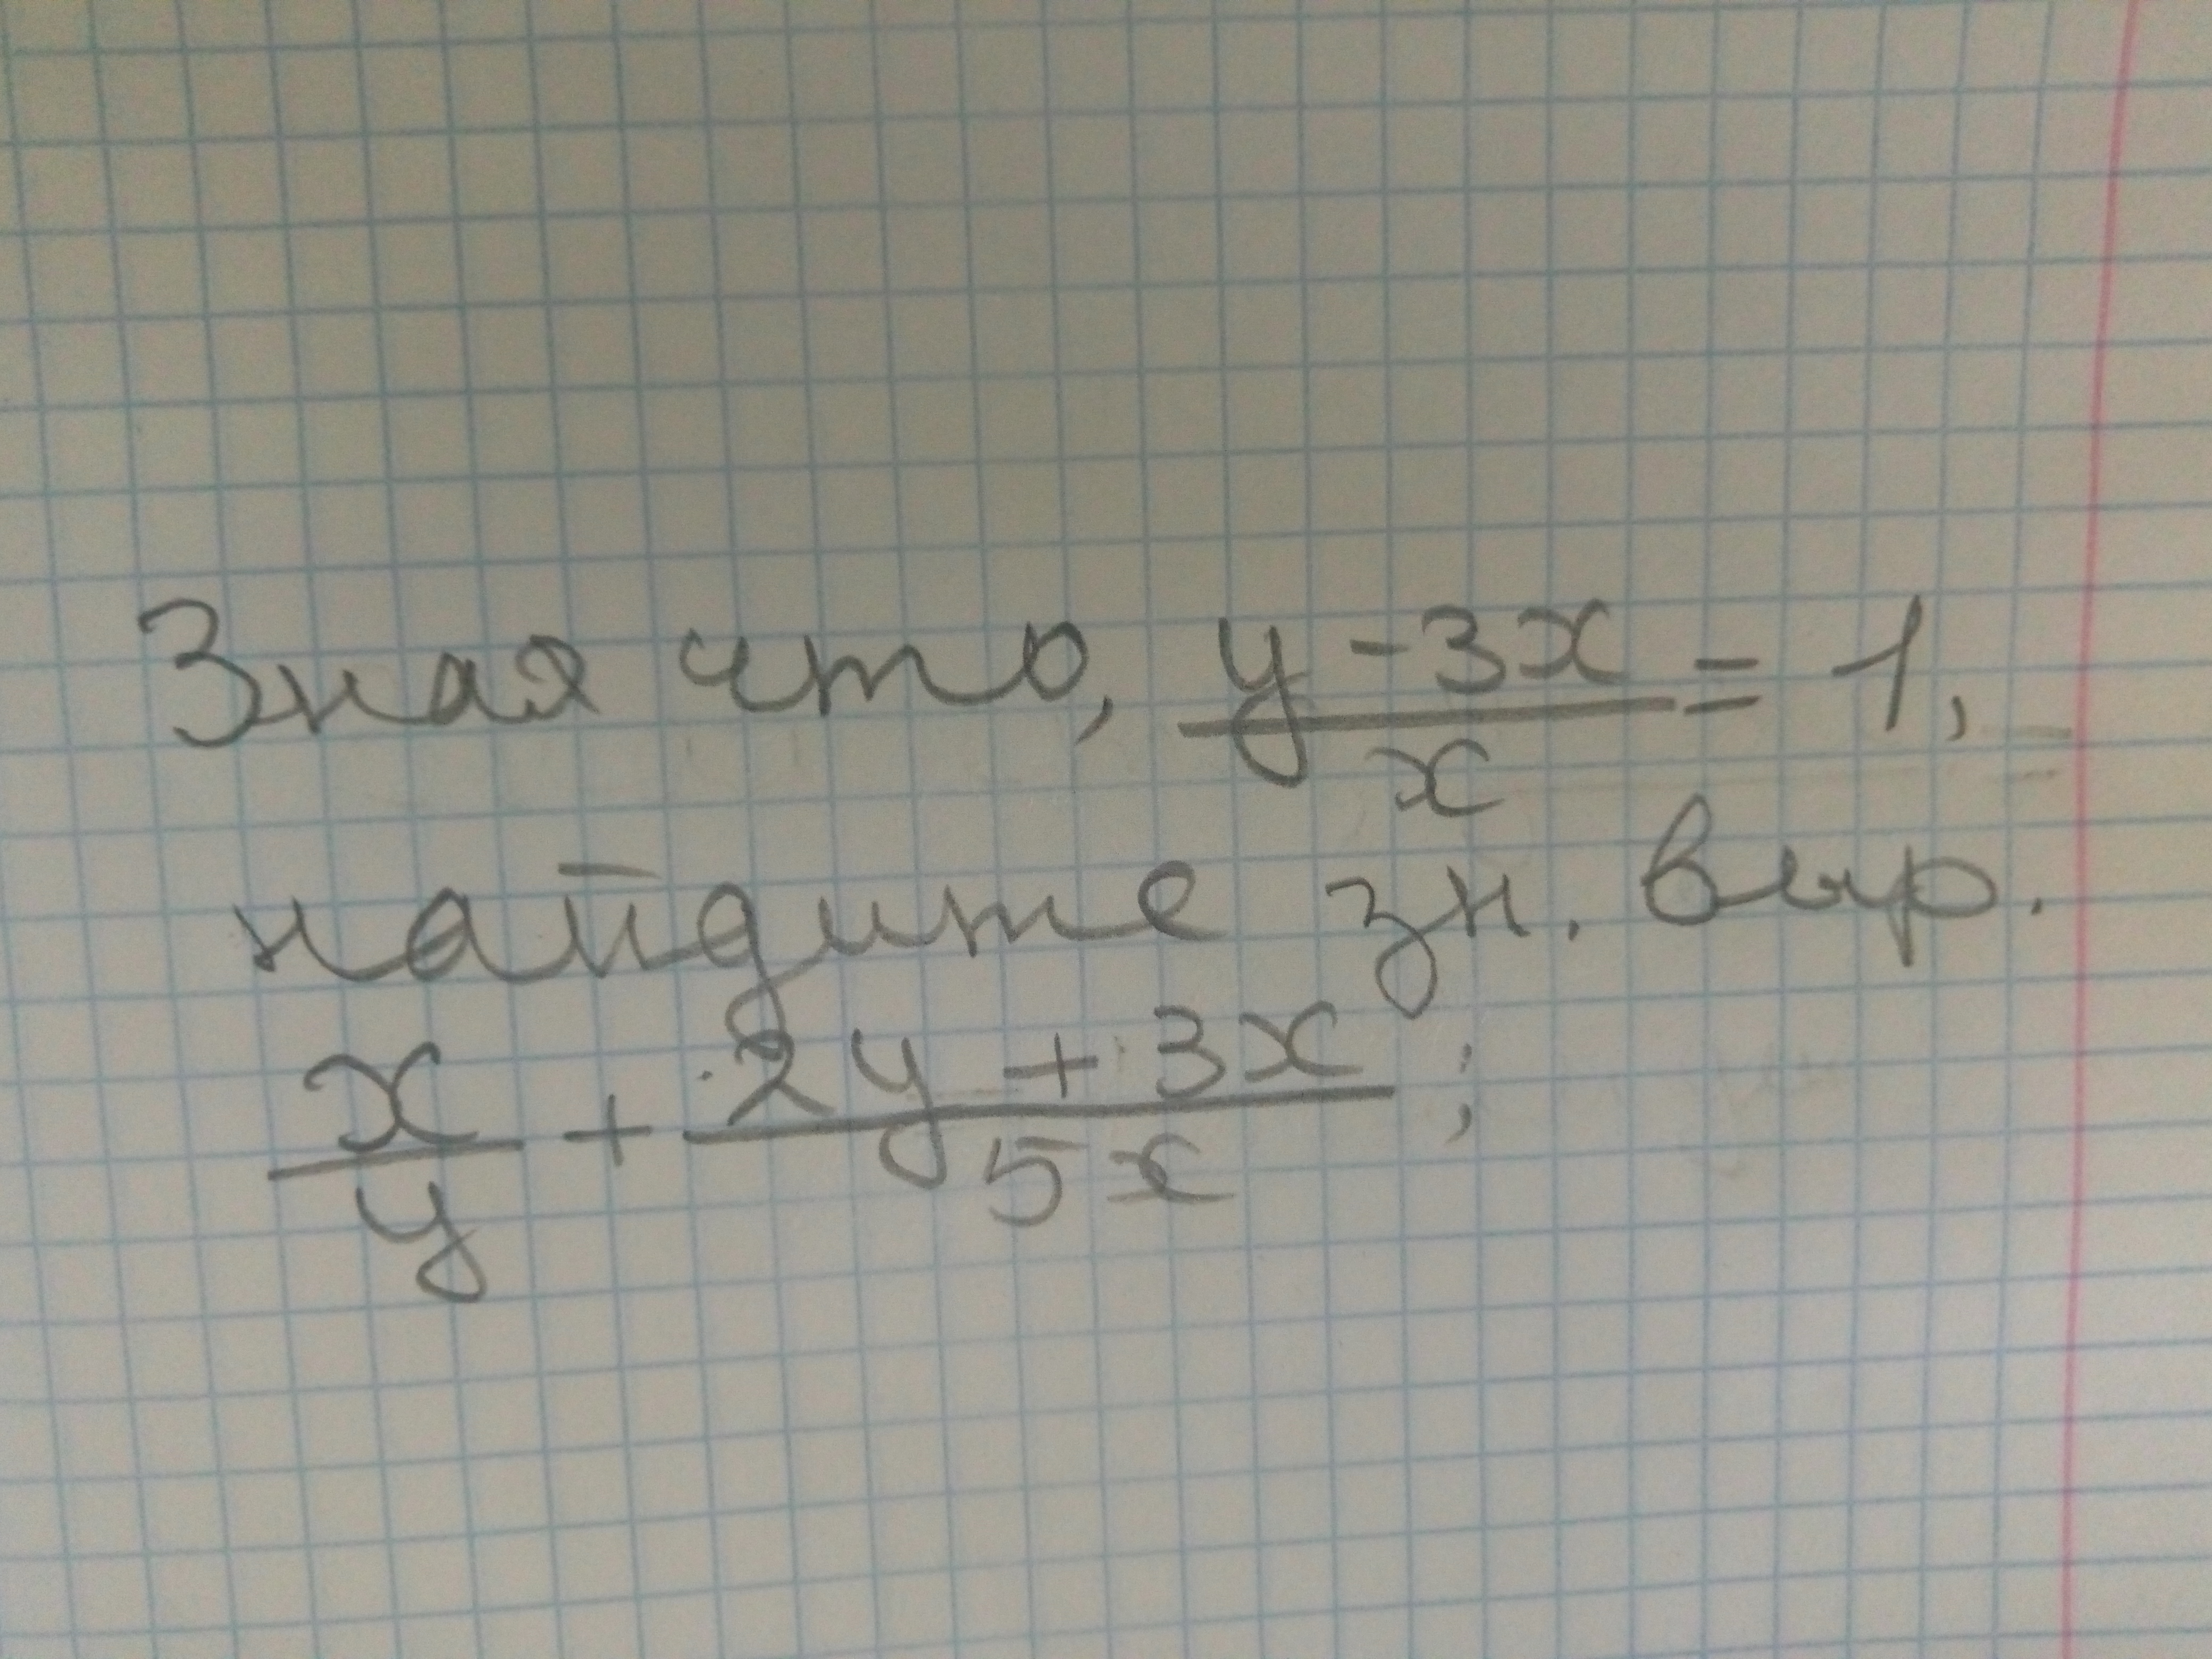 Зная что, (y - 3x)/x = 1,
найдите зн. выр.
x/y + (2y + 3x)/5x ;